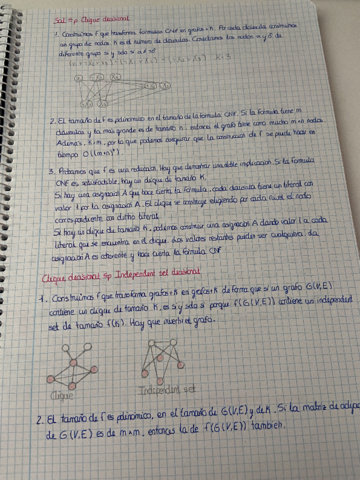 Sat ≤p Clique decisional
1. Construimos f que transforma fórmulas CNF en grafos + K. Por cada cláusula construimos
un grupo de nodos. K es el número de cláusulas. Conectamos los nodos α y β de
diferente grupo si y sólo si
2. El tamaño de f es polinómico en el tamaño de la fórmula CNF. Si la fórmula tiene m
cláusulas y la más grande es de tamaño n, entonces el grafo tiene como mucho m·n nodos.
Además, K=m, por lo que podemos asegurar que la construcción de f se puede hacer en
tiempo O((m·n)²)
3. Probamos que f es una reducción. Hay que demostrar una doble implicación. Si la fórmula
CNF es satisfactible, hay un clique de tamaño K.
Si hay una asignación A que hace cierta la fórmula, cada cláusula tiene un literal con
valor 1 por la asignación A. El clique se construye eligiendo por cada nivel el nodo
correspondiente con dicho literal
Si hay un clique de tamaño K, podemos construir una asignación A dando valor 1 a cada
literal que se encuentra en el clique. Los valores restantes pueden ser cualquiera. La
asignación A es coherente y hace cierta la fórmula CNF
Clique decisional ≤p Independent set decisional
1. Construimos f que transforma grafos + K en grafos + K de forma que si un grafo G(V,E)
contiene un clique de tamaño K, es si y sólo si porque f(G(V,E)) contiene un independent
set de tamaño f(K). Hay que invertir el grafo.
Clique
Independent set
2. El tamaño de f es polinómico, en el tamaño de G(V,E) y de K. Si la matriz de
de G(V,E) es de m×m, entonces la de f(G(V,E)) también.